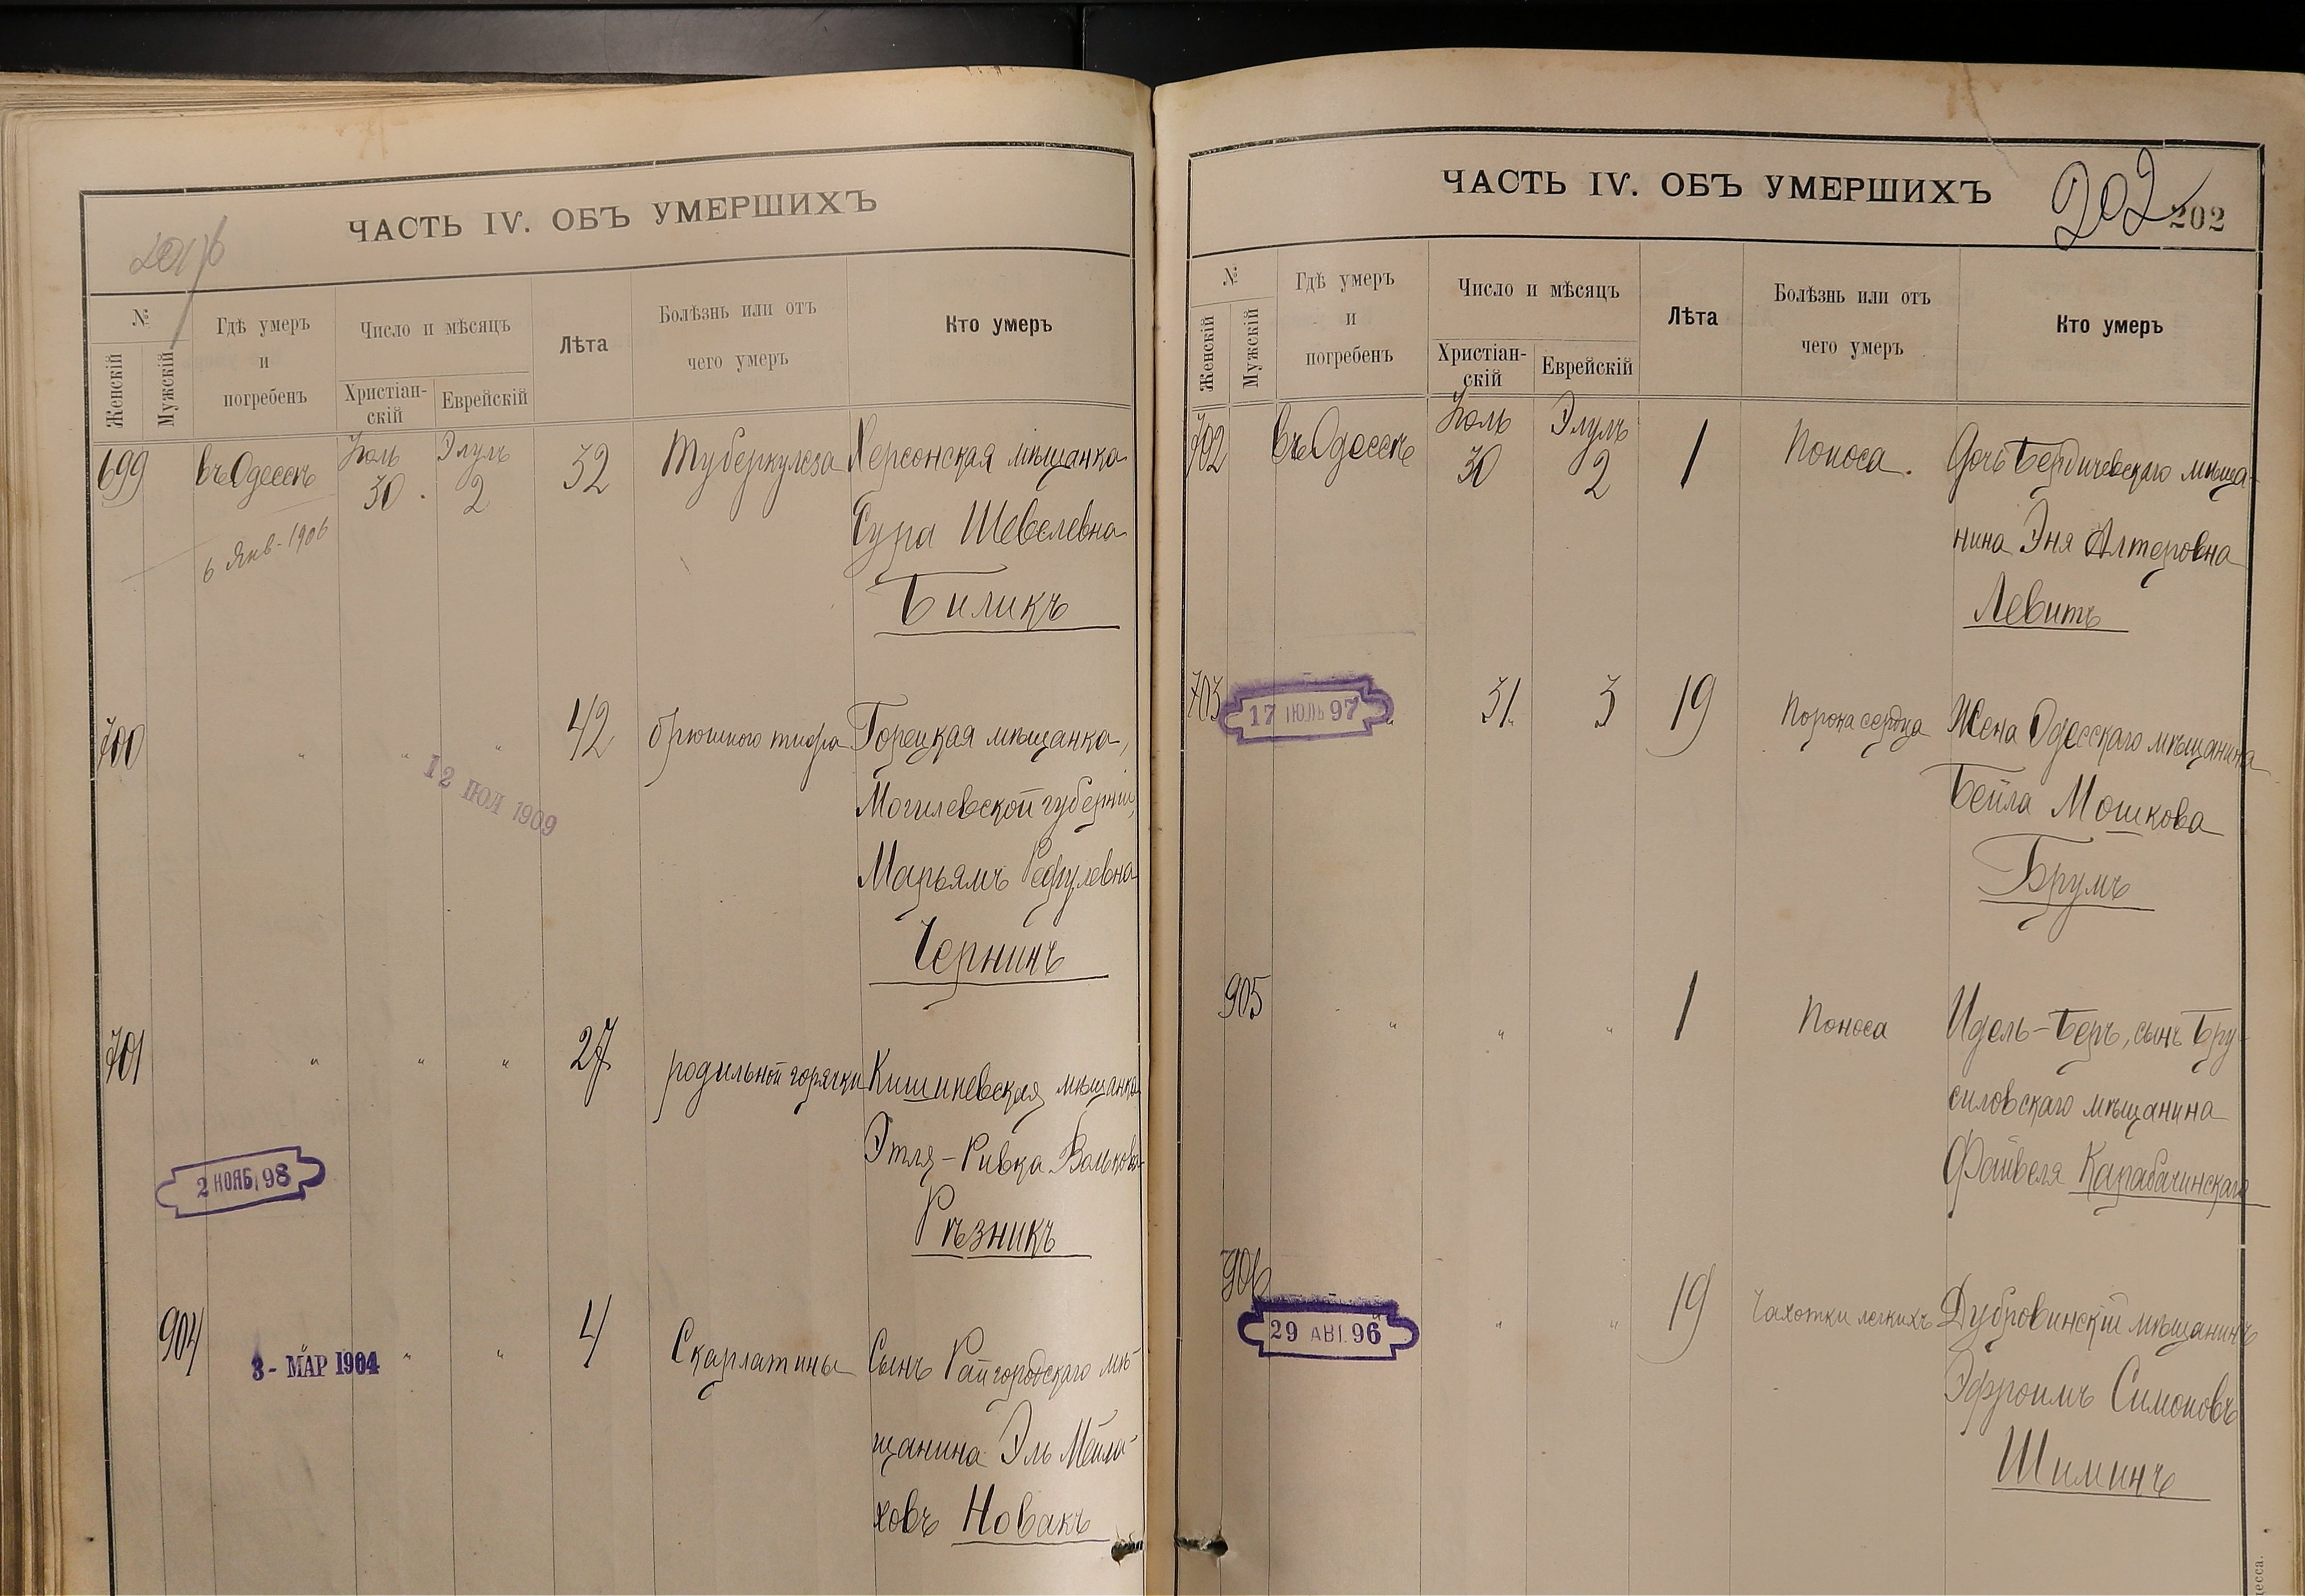 201 об
ЧАСТЬ IV. ОБЪ УМЕРШИХЪ
№
Женскій
Мужскій
Гдѣ умеръ
и
погребенъ
Число и мѣсяцъ
Христіан-
скій
Еврейскій
Лѣта
Болѣзнь или отъ
чего умеръ
Кто умеръ
699 въ Одессѣ Іюль 30. Элулъ 2 32 Туберкулеза Херсонская мѣщанка
Сура Шевелевна
6 Янв. 1906
Биликъ
700 " " " 42 брюшного тифа Горецкая мѣщанка,
12 ІЮЛ 1909
Могилевской губерніи,
Марьямъ Рефулевна
Чернинъ
701 " " " 27 родильной горячки Кишиневская мѣщанка
Этля-Ривка Волькова
2 НОЯБ 98
Рѣзникъ
904 " " " 4 Скарлатины Сынъ Райгородскаго мѣ-
3 - МАР 1904
щанина Эль Мейла-
ховъ Новакъ
ЧАСТЬ IV. ОБЪ УМЕРШИХЪ
202
202
№
Женскій
Мужскій
Гдѣ умеръ
и
погребенъ
Число и мѣсяцъ
Христіан-
скій
Еврейскій
Лѣта
Болѣзнь или отъ
чего умеръ
Кто умеръ
702 въ Одессѣ Іюль 30 Элулъ 2 1 Поноса. Дочь Бердичевскаго мѣща-
нина Эня Алтеровна
Левитъ
703 31 3 19 Порока сердца Жена Одесскаго мѣщанина
17 ІЮЛЬ 97
Бейла Мошкова
Брумъ
905 " " " 1 Поноса Идель-Беръ, сынъ Бру-
силовскаго мѣщанина
Файвеля Карабачинскаго
906 " " " 19 Чахотки легкихъ Дубровинскій мѣщанинъ
29 АВГ. 96
Эфроимъ Симоновъ
Шиминъ